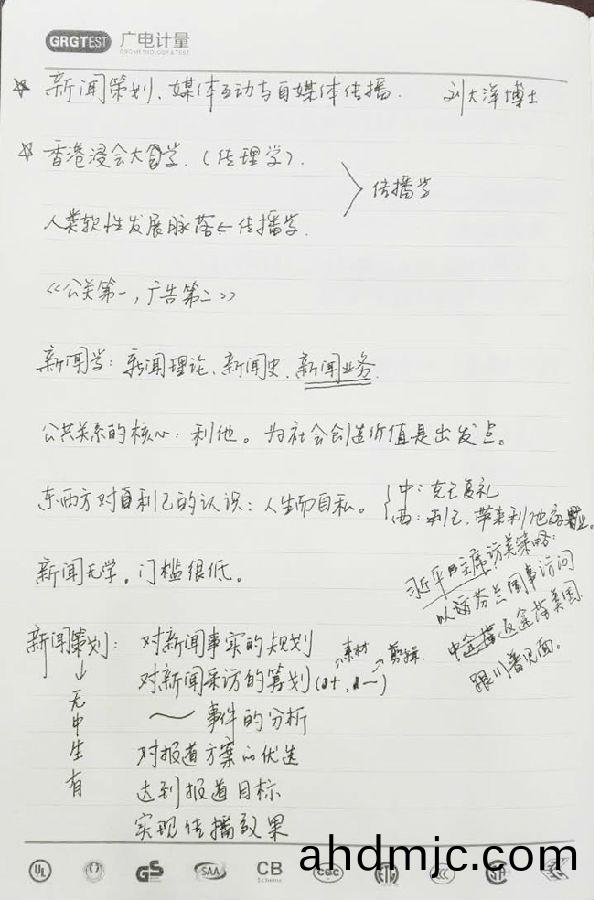 GRGTEST 广电计量
☆ 新闻策划、媒体互动与自媒体传播. 刘大洋博士
☆ 香港浸会大学.(传理学).
传播学
人类软性发展脉落←传播学.
《公关第一,广告第二》
新闻学:新闻理论、新闻史、新闻业务.
公共关系的核心:利他。为社会创造价值是出发点。
东西方对自利己的认识:人生而自私。
中:克己复礼
西:利己,带来利他商业。
新闻无学。门槛很低。
习近平主席访美策略:
以访芬兰国事访问
中途返途落美国
跟川普见面。
新闻策划: 对新闻事实的规划
↓
无中生有
素材 剪辑
对新闻采访的筹划
~ 事件的分析
对报道方案的优选
达到报道目标
实现传播效果
ahdmjc.com
UL GS SAA CB CQC
Scheme